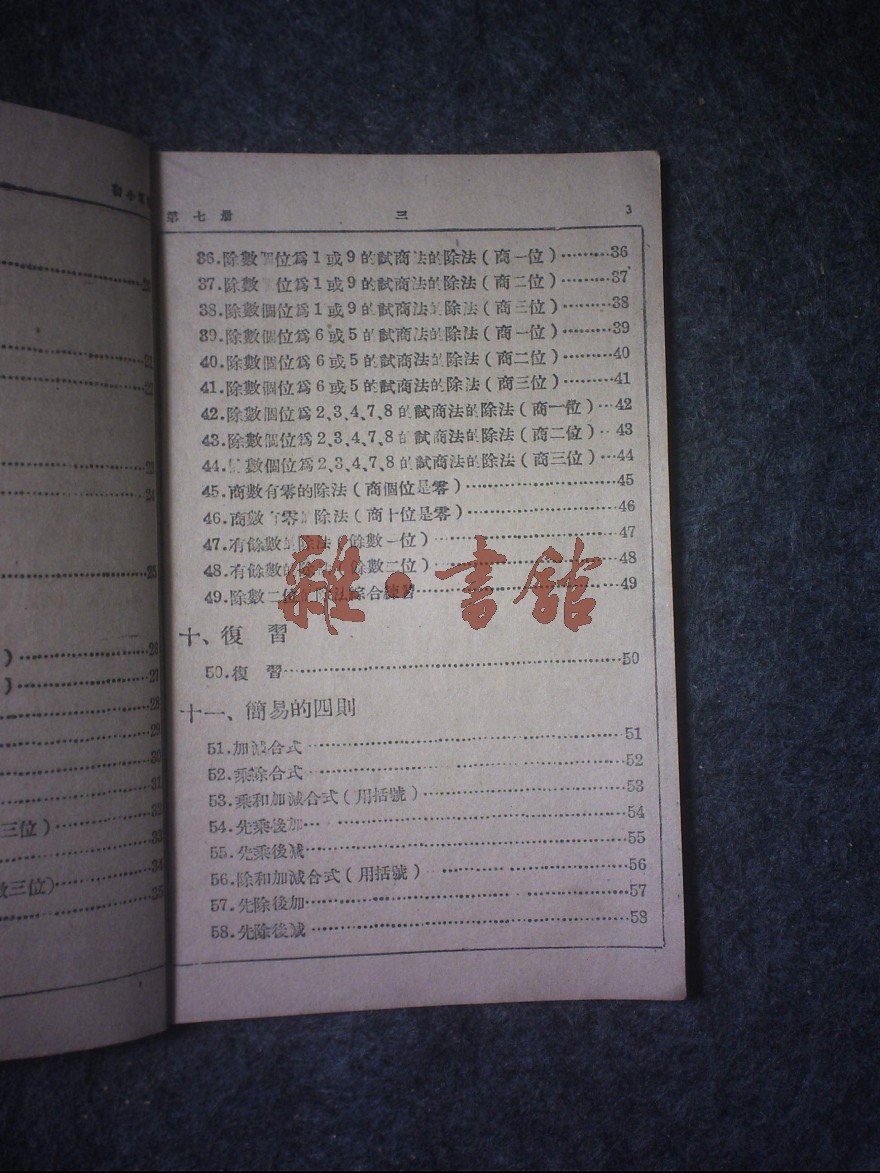 20
21
22
23
24
25
)……26
)……27
28
29
30
31
32
三位)……33
34
數三位)……35
第七册 三 3
36.除數個位爲1或9的試商法的除法(商一位)………36
37.除數 位爲1或9的試商法的除法(商二位)………37
38.除數個位爲1或9的試商法的除法(商三位)………38
39.除數個位爲6或5的試商法的除法(商一位)………39
40.除數個位爲6或5的試商法的除法(商二位)………40
41.除數個位爲6或5的試商法的除法(商三位)………41
42.除數個位爲2、3、4、7、8的試商法的除法(商一位)…42
43.除數個位爲2、3、4、7、8的試商法的除法(商二位)…43
44. 數個位爲2、3、4、7、8的試商法的除法(商三位)…44
45.商數有零的除法(商個位是零)………45
46.商數有零 除法(商十位是零)………46
47.有餘數的除法(餘數一位)………47
48.有餘數的除法(餘數二位)………48
49.除數二位的除法綜合練習………49
雜·書館
十、復習
50.複習………50
十一、簡易的四則
51.加減合式………51
52.乘除合式………52
53.乘和加減合式(用括號)………53
54.先乘後加………54
55.先乘後減………55
56.除和加減合式(用括號)………56
57.先除後加………57
58.先除後減………58